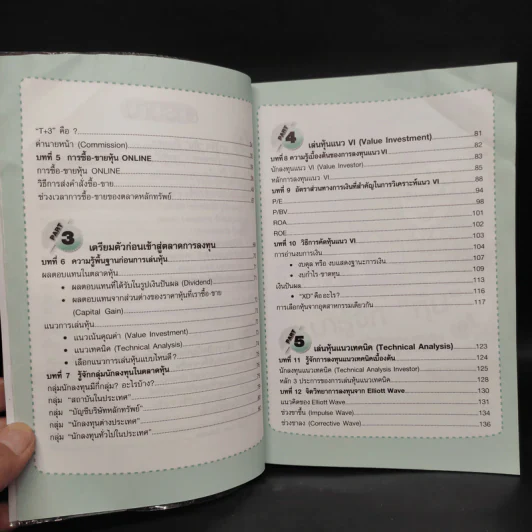 "T+3" คือ ?
ค่านายหน้า (Commission)
บทที่ 5 การซื้อ-ขายหุ้น ONLINE
การซื้อ-ขายหุ้น ONLINE
วิธีการส่งคำสั่งซื้อ-ขาย
ช่วงเวลาการซื้อ-ขายของตลาดหลักทรัพย์
PART 3 เตรียมตัวก่อนเข้าสู่ตลาดการลงทุน
บทที่ 6 ความรู้พื้นฐานก่อนการเล่นหุ้น
ผลตอบแทนในตลาดหุ้น
• ผลตอบแทนที่ได้รับในรูปเงินปันผล (Dividend)
• ผลตอบแทนจากส่วนต่างของราคาหุ้นที่เราซื้อ-ขาย
(Capital Gain)
แนวการเล่นหุ้น
• แนวเน้นคุณค่า (Value Investment)
• แนวเทคนิค (Technical Analysis)
• เลือกแนวการเล่นหุ้นแบบไหนดี?
บทที่ 7 รู้จักกลุ่มนักลงทุนในตลาดหุ้น
กลุ่มนักลงทุนมีกี่กลุ่ม? อะไรบ้าง?
กลุ่ม "สถาบันในประเทศ"
กลุ่ม "บัญชีบริษัทหลักทรัพย์"
กลุ่ม "นักลงทุนต่างประเทศ"
กลุ่ม "นักลงทุนทั่วไปในประเทศ"
PART 4 เล่นหุ้นแนว VI (Value Investment) 81
บทที่ 8 ความรู้เบื้องต้นของการลงทุนแนว VI 82
นักลงทุนแนว VI (Value Investor) 83
หลักการลงทุนแนว VI 85
บทที่ 9 อัตราส่วนทางการเงินที่สำคัญในการวิเคราะห์แนว VI 88
P/E 94
P/BV 98
ROA 101
ROE 102
บทที่ 10 วิธีการคัดหุ้นแนว VI 103
การอ่านงบการเงิน 104
• งบดุล หรือ งบแสดงฐานะการเงิน 107
• งบกำไร-ขาดทุน 110
เงินปันผล 113
• "XD" คืออะไร? 116
การเลือกหุ้นจากอุตสาหกรรมเดียวกัน 117
PART 5 เล่นหุ้นแนวเทคนิค (Technical Analysis) 123
บทที่ 11 รู้จักการลงทุนแนวเทคนิคเบื้องต้น 124
นักลงทุนแนวเทคนิค (Technical Analysis Investor) 125
หลัก 3 ประการของการเล่นหุ้นแนวเทคนิค 128
บทที่ 12 จิตวิทยาการลงทุนจาก Elliott Wave 130
แนวคิดของ Elliott Wave 131
ช่วงขาขึ้น (Impulse Wave) 134
ช่วงขาลง (Corrective Wave) 136